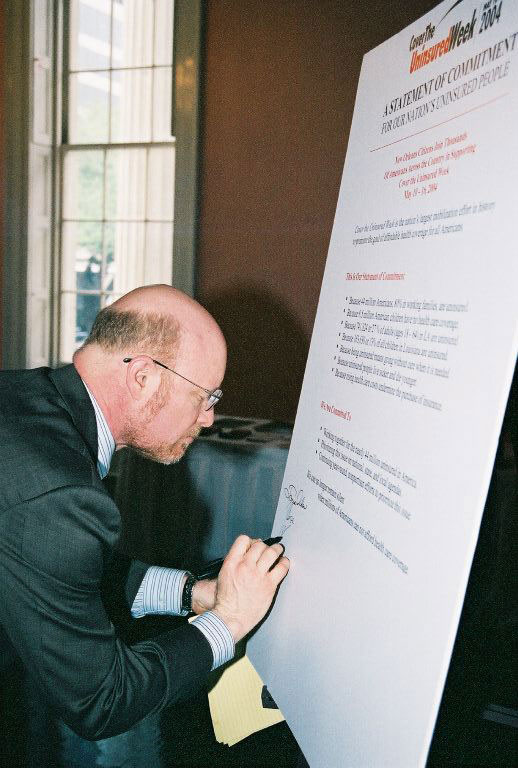 Cover The
UninsuredWeek
MAY 2004
A STATEMENT OF COMMITMENT
FOR OUR NATION'S UNINSURED PEOPLE
New Orleans Citizens Join Thousands
Of Americans Across the Country in Supporting
Cover the Uninsured Week
May 10 - 16, 2004
Cover the Uninsured Week is the nation's largest mobilization effort in history
to promote the goal of affordable health coverage for all Americans
This Is Our Statement of Commitment:
• Because 44 million Americans, 80% in working families, are uninsured.
• Because 8.5 million American children have no health care coverage.
• Because of adults (ages 18 - 64) in LA are uninsured.
• Because of all children in Louisiana are uninsured.
• Because being uninsured means going without care when it is needed.
• Because uninsured people live sicker and die younger.
• Because rising health care costs undermine the purchase of insurance.
We Are Committed To
• Working together for the nearly 44 million uninsured in America.
• Prioritizing this issue on national, state, and local agendas.
• Continuing year-round, nonpartisan efforts to prioritize this issue.
We can no longer remain silent
when millions of Americans can not afford health care coverage.